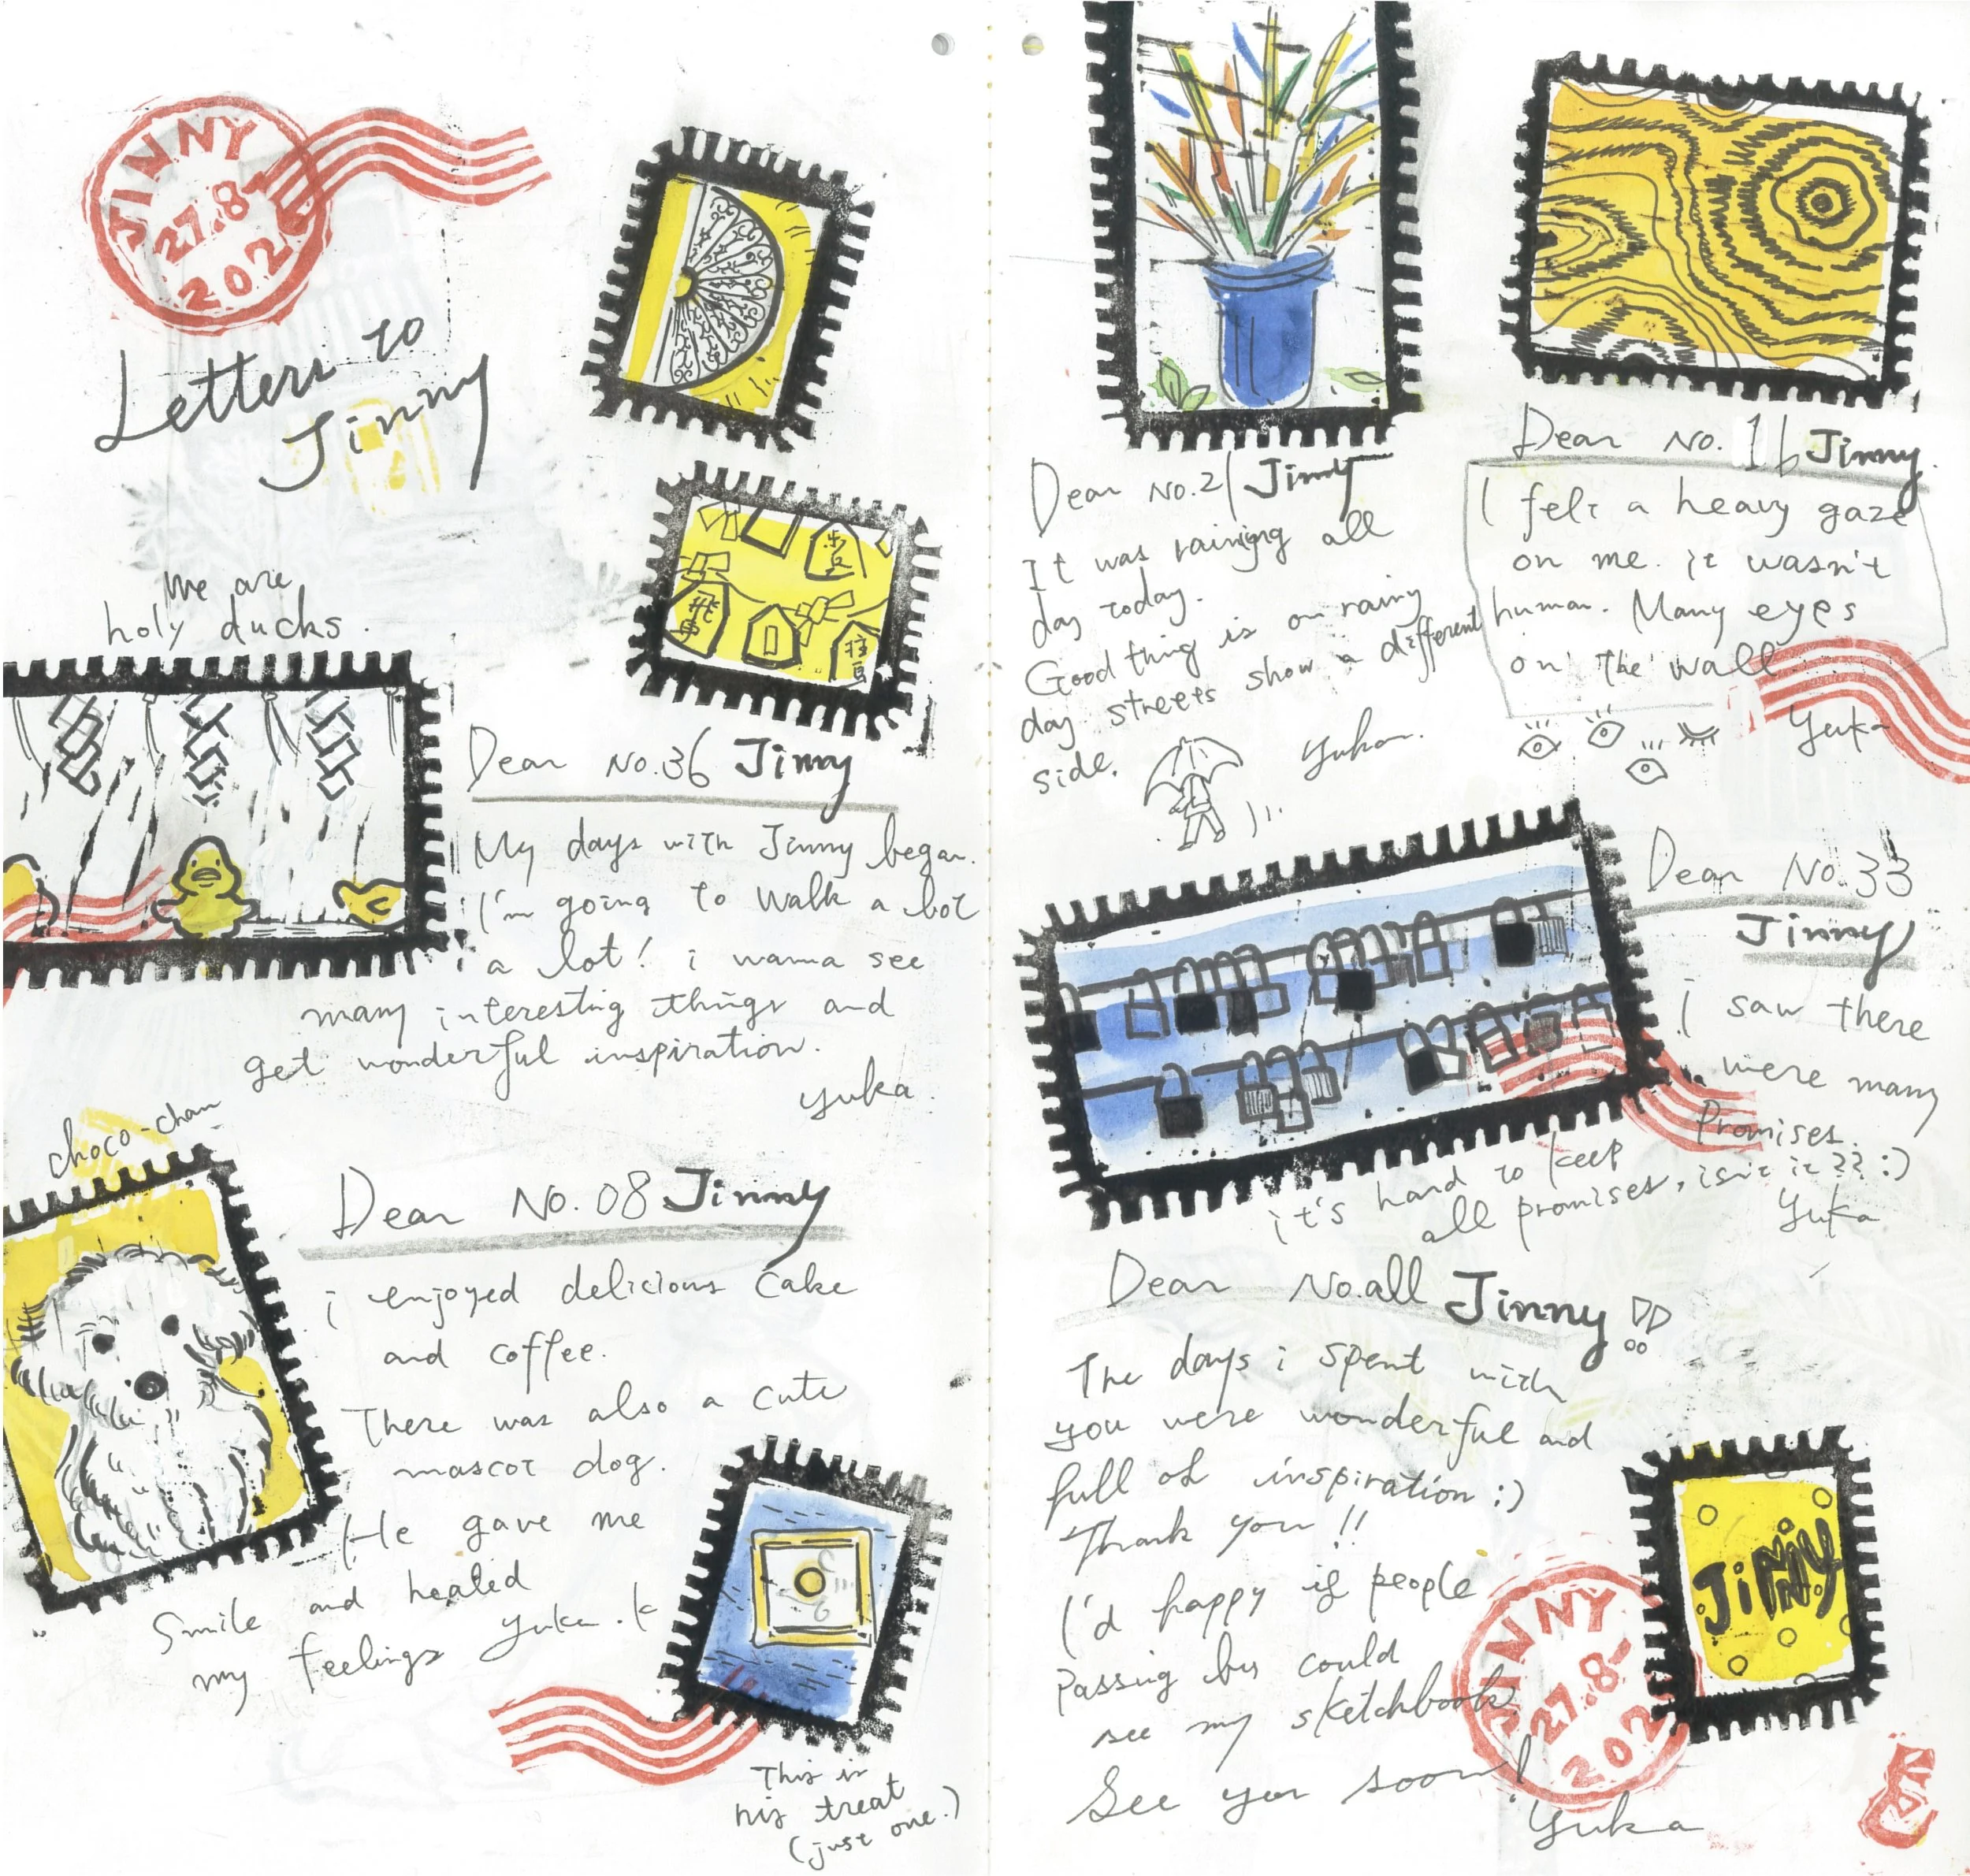 JINNY
27.8-
202
Letters to
Jinny
We are
holy ducks.
Dear No.36 Jinny
My days with Jinny began.
I'm going to walk a lot
a lot! i wanna see
many interesting things and
get wonderful inspiration.
yuka
choco-chan
Dear No.08 Jinny
i enjoyed delicious cake
and coffee.
There was also a cute
mascot dog.
He gave me
smile and healed
my feelings yuka.k
This is
his treat
(just one.)
Dear No.21 Jinny
It was raining all
day today.
Good thing is on rainy
day streets show a different
side.
yuka.
Dear No.16 Jinny.
I felt a heavy gaze
on me. it wasn't
human. Many eyes
on the wall
yuka
Dear No.33
Jinny
i saw there
were many
Promises.
it's hard to keep
all promises, isn't it?? :)
yuka
Dear No.all Jinny!!
The days i spent with
you were wonderful and
full of inspiration :)
Thank you!!
I'd happy if people
passing by could
see my sketchbook
See you soon!
yuka
JINNY
JINNY
27.8-
202